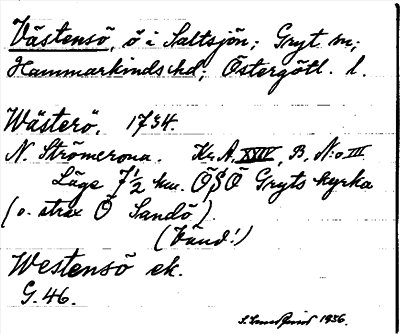 Västensö, ö i Saltsjön; Gryt sn;
Hammarkinds hd; Östergötl. l.
Wästerö, 1734.
N. Strömcrona. Kr. A. XXIV, B. N:o III
Läge 7 1/2 km. ÖSÖ Gryts kyrka
(o. strax Ö Sandö).
(Vänd!)
Westensö ek.
G. 46.
1936.